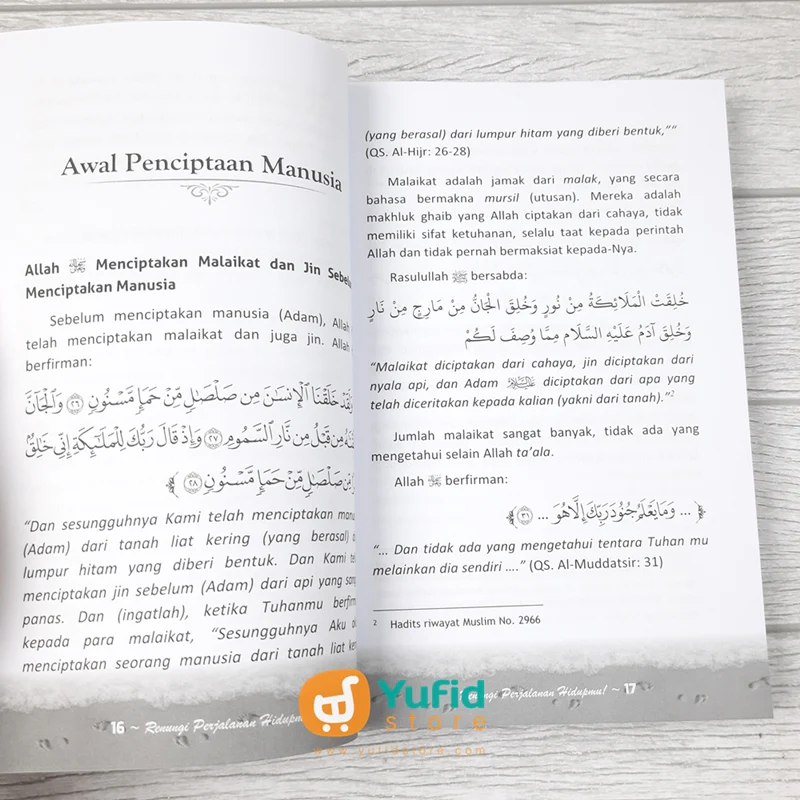 Awal Penciptaan Manusia
Allah ﷻ Menciptakan Malaikat dan Jin
Menciptakan Manusia
Sebelum menciptakan manusia (Adam), Allah
telah menciptakan malaikat dan juga jin. Allah
berfirman:
خَلَقْنَا ٱلْإِنسَٰنَ مِن صَلْصَٰلٍ مِّنْ حَمَإٍ مَّسْنُونٍ ﴿٢٦﴾ وَٱلْجَآنَّ
مِن قَبْلُ مِن نَّارِ ٱلسَّمُومِ ﴿٢٧﴾ وَإِذْ قَالَ رَبُّكَ لِلْمَلَٰٓئِكَةِ إِنِّى خَٰلِقٌۢ
مِّن صَلْصَٰلٍ مِّنْ حَمَإٍ مَّسْنُونٍ ﴿٢٨﴾
“Dan sesungguhnya Kami telah menciptakan
(Adam) dari tanah liat kering (yang berasal)
lumpur hitam yang diberi bentuk. Dan Kami
menciptakan jin sebelum (Adam) dari api yang
panas. Dan (ingatlah), ketika Tuhanmu
kepada para malaikat, “Sesungguhnya Aku
menciptakan seorang manusia dari tanah liat
16 ~ Renungi Perjalanan
(yang berasal) dari lumpur hitam yang diberi bentuk,”“
(QS. Al-Hijr: 26-28)
Malaikat adalah jamak dari malak, yang secara
bahasa bermakna mursil (utusan). Mereka adalah
makhluk ghaib yang Allah ciptakan dari cahaya, tidak
memiliki sifat ketuhanan, selalu taat kepada perintah
Allah dan tidak pernah bermaksiat kepada-Nya.
Rasulullah ﷺ bersabda:
خُلِقَتْ الْمَلَائِكَةُ مِنْ نُورٍ وَخُلِقَ الْجَانُّ مِنْ مَارِجٍ مِنْ نَارٍ
وَخُلِقَ آدَمُ عَلَيْهِ السَّلَام مِمَّا وُصِفَ لَكُمْ
“Malaikat diciptakan dari cahaya, jin diciptakan dari
nyala api, dan Adam diciptakan dari apa yang
telah diceritakan kepada kalian (yakni dari tanah).”2
Jumlah malaikat sangat banyak, tidak ada yang
mengetahui selain Allah ta’ala.
Allah ﷻ berfirman:
﴿ ... وَمَا يَعْلَمُ جُنُودَ رَبِّكَ إِلَّا هُوَ ... ﴿٣١﴾ ﴾
“... Dan tidak ada yang mengetahui tentara Tuhan mu
melainkan dia sendiri ....” (QS. Al-Muddatsir: 31)
2 Hadits riwayat Muslim No. 2966
Perjalanan Hidupmu! ~ 17
Yufid
store
www.yufidstore.com